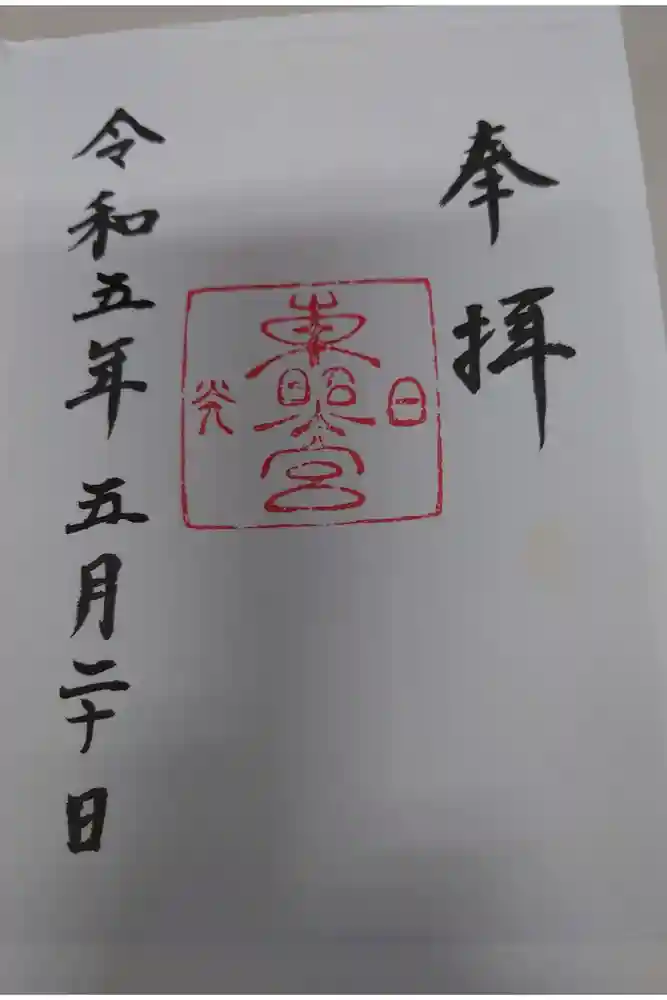 奉拝
日
東照宮
光
令和五年 五月二十日